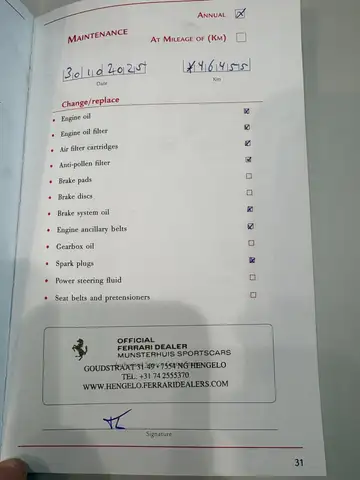 ANNUAL
MAINTENANCE
AT MILEAGE OF (KM)
30102025
46455
Date
Km
Change/replace
Engine oil
Engine oil filter
Air filter cartridges
Anti-pollen filter
Brake pads
Brake discs
Brake system oil
Engine ancillary belts
Gearbox oil
Spark plugs
Power steering fluid
Seat belts and pretensioners
OFFICIAL
FERRARI DEALER
MUNSTERHUIS SPORTSCARS
GOUDSTRAAT 31-49 • 7554 NG HENGELO
TEL. +31 74 2555370
WWW.HENGELO.FERRARIDEALERS.COM
Signature
31